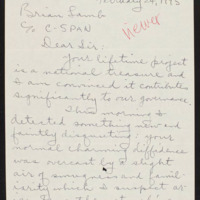 February 24, 1993
Brian Lamb
c/o C-SPAN
newer
Dear Sir:
Your lifetime project
is a national treasure and
I am convinced it contributes
significantly to our governance.
This morning I
detected something new and
faintly disquieting: your
normal charming diffidence
was overcast by a slight
air of smugness and famil-
iarity which I suspect